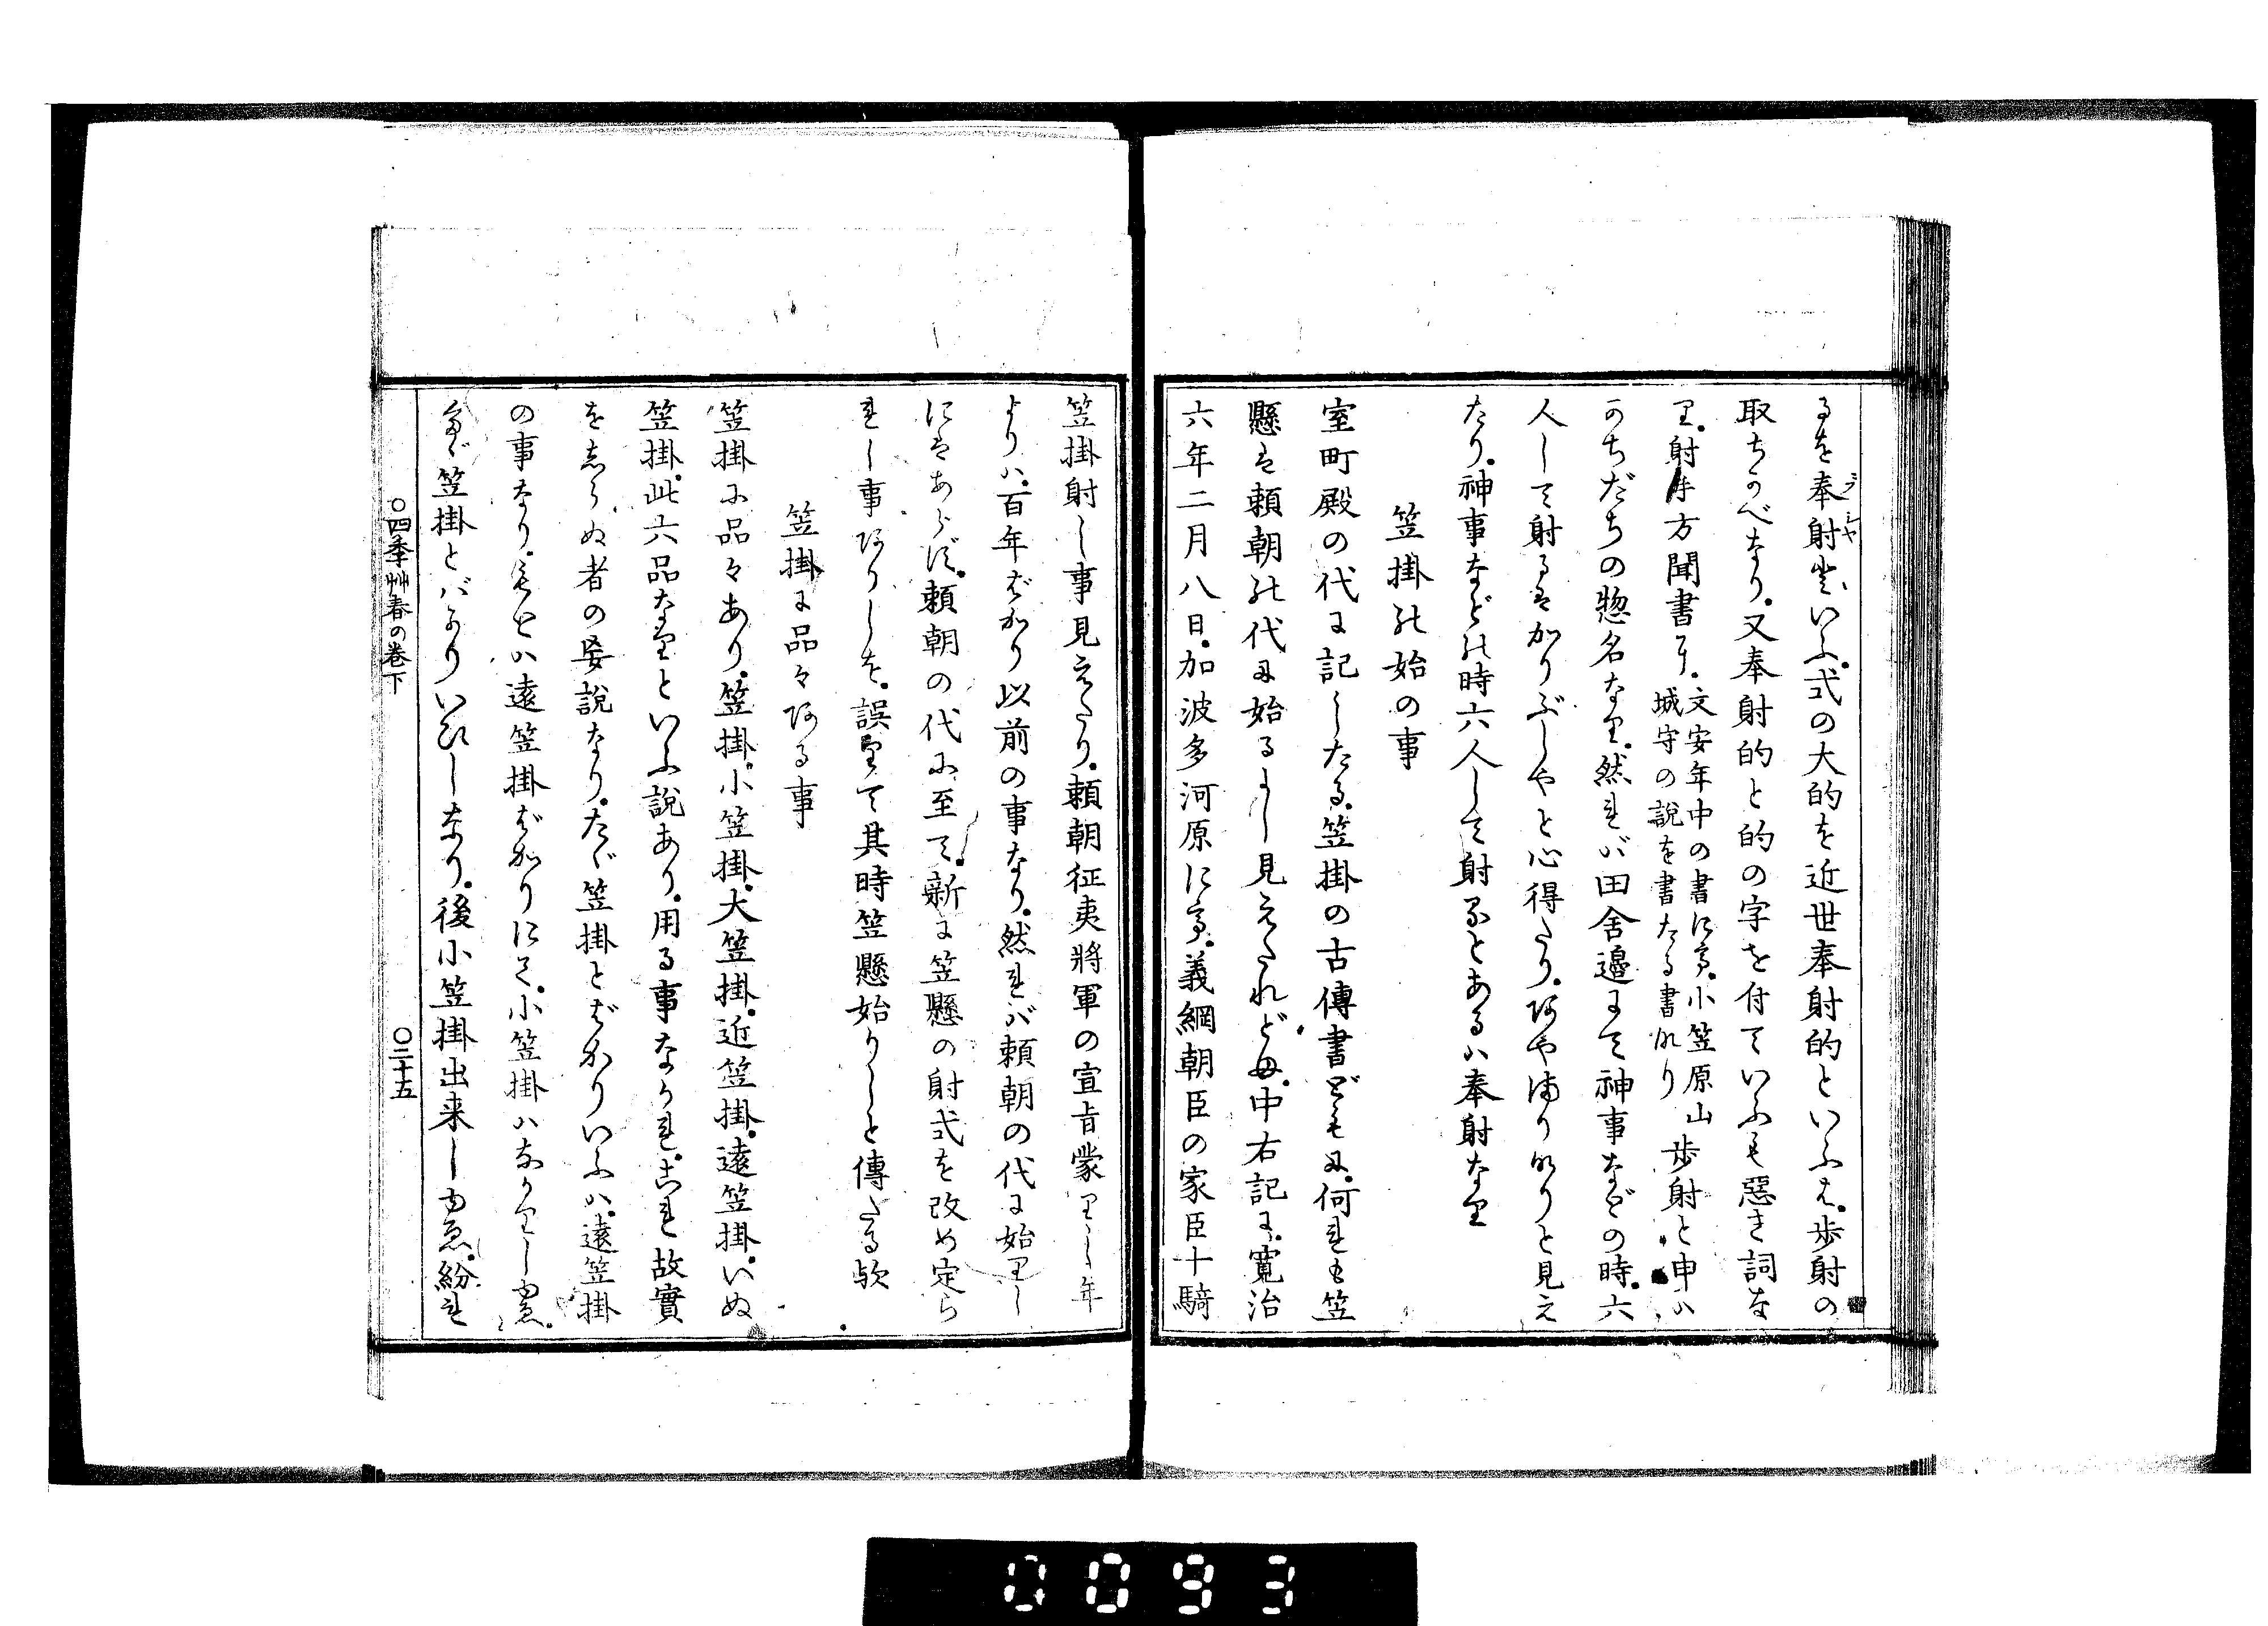 るを奉射といふ。式の大的を近世奉射的といふは。歩射の
ブシヤ
取ちがへなり。又奉射的と的の字を付ていふも惡き詞な
り。射手方聞書に。文安年中の書にて。小笠原山
城守の說を書たる書なり 歩射と申ハ
かちだちの惣名なり。然れバ田舍邊にて神事などの時。六
人して射るをかりぶしやと心得たり。あやまりなりと見え
たり。神事などの時六人して射るとあるハ奉射なり
笠掛の始の事
室町殿の代に記したる。笠掛の古傳書どもに。何れも笠
懸を頼朝の代に始るよし見えたれども。中右記に。寬治
六年二月八日。加波多河原にて。義綱朝臣の家臣十騎
笠掛射し事見えたり。頼朝征夷將軍の宣旨蒙りし年
よりハ。百年ばかり以前の事なり。然れバ頼朝の代に始りし
にはあらず。頼朝の代に至て。新に笠懸の射式を改め定ら
れし事ありしを。誤りて其時笠懸始りしと傳たる歟
笠掛に品々ある事
笠掛に品々あり。笠掛。小笠掛。大笠掛。近笠掛。遠笠掛。いぬ
笠掛。此六品なりといふ說あり。用る事なかれ。これ故實
をしらぬ者の妄說なり。たゞ笠掛とばかりいふハ。遠笠掛
の事なり。もとハ遠笠掛ばかりにて。小笠掛ハなかりしゆゑ。
たゞ笠掛とバかりいひしなり。後小笠掛出来しゆゑ。紛れ
〇四季艸春の巻下
〇三十五
0093